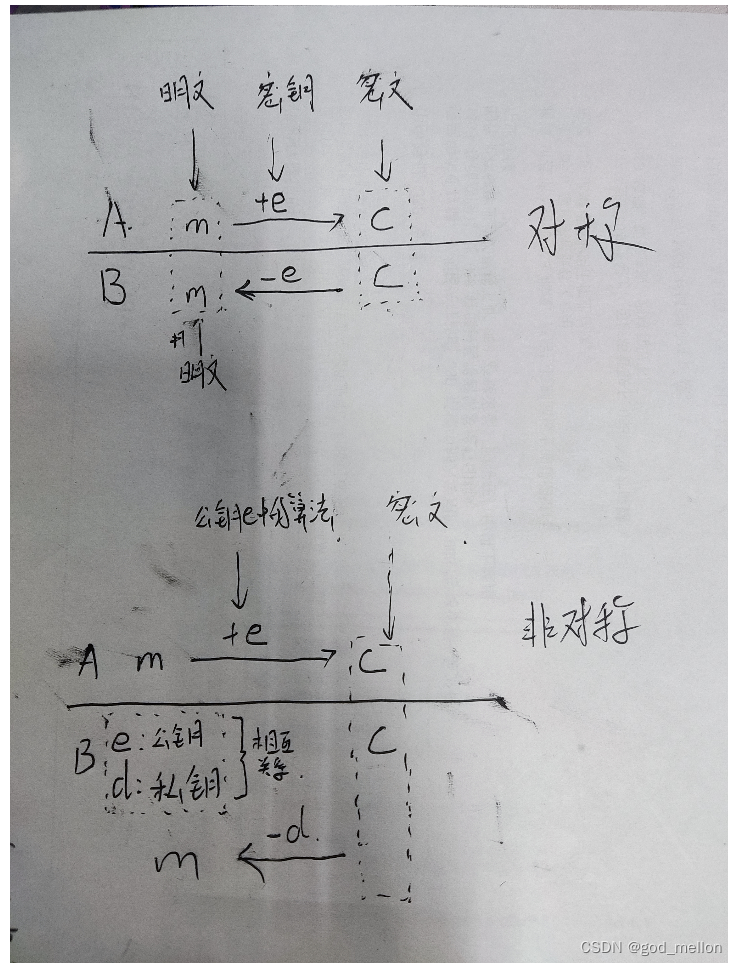 明文 密钥 密文
A m +e C
对称
B m -e C
明文
公钥e中的算法 密文
+e
非对称
A m C
B e:公钥 相互 C
d:私钥 关系
-d
m
CSDN @god_mellon